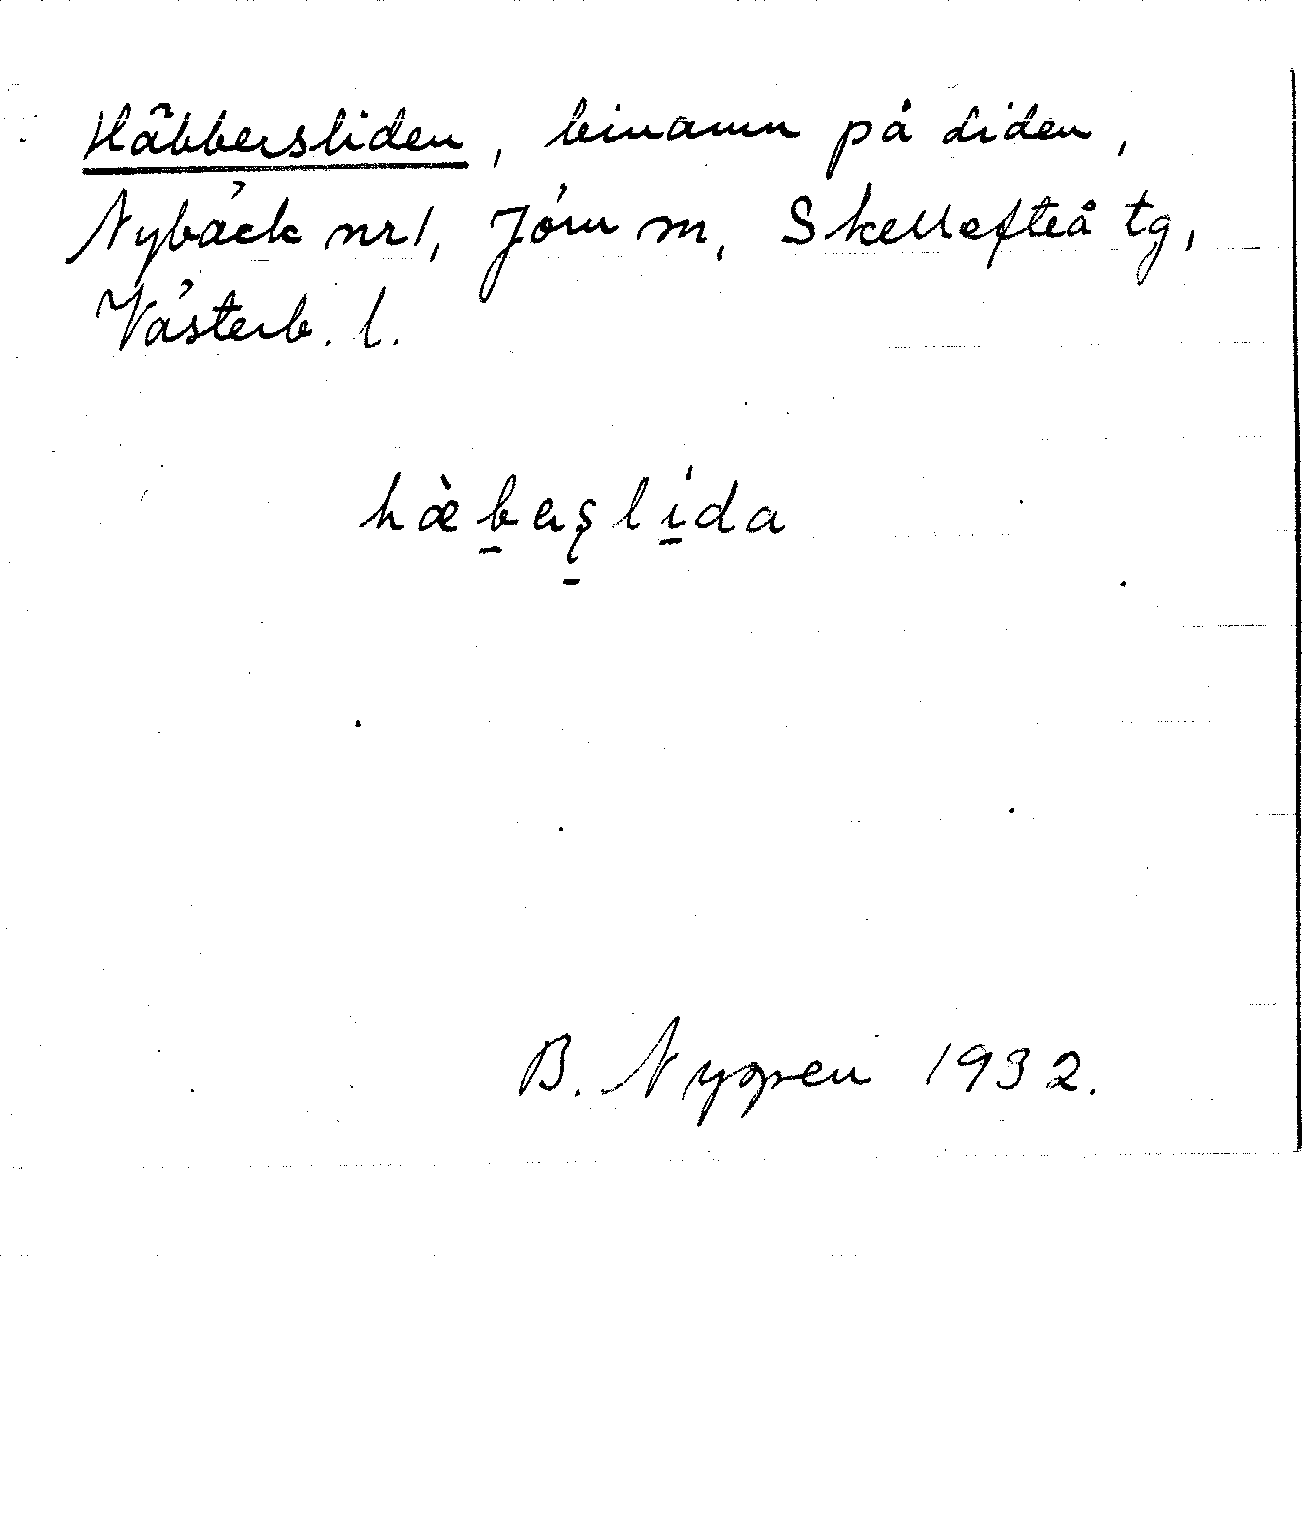 Häbbersliden, binamn på Liden,
Nybäck nr 1, Jörn sn, Skellefteå tg,
Västerb. l.
hæ̀b̲ərs̨̲lí̲da
B. Nygren 1932.